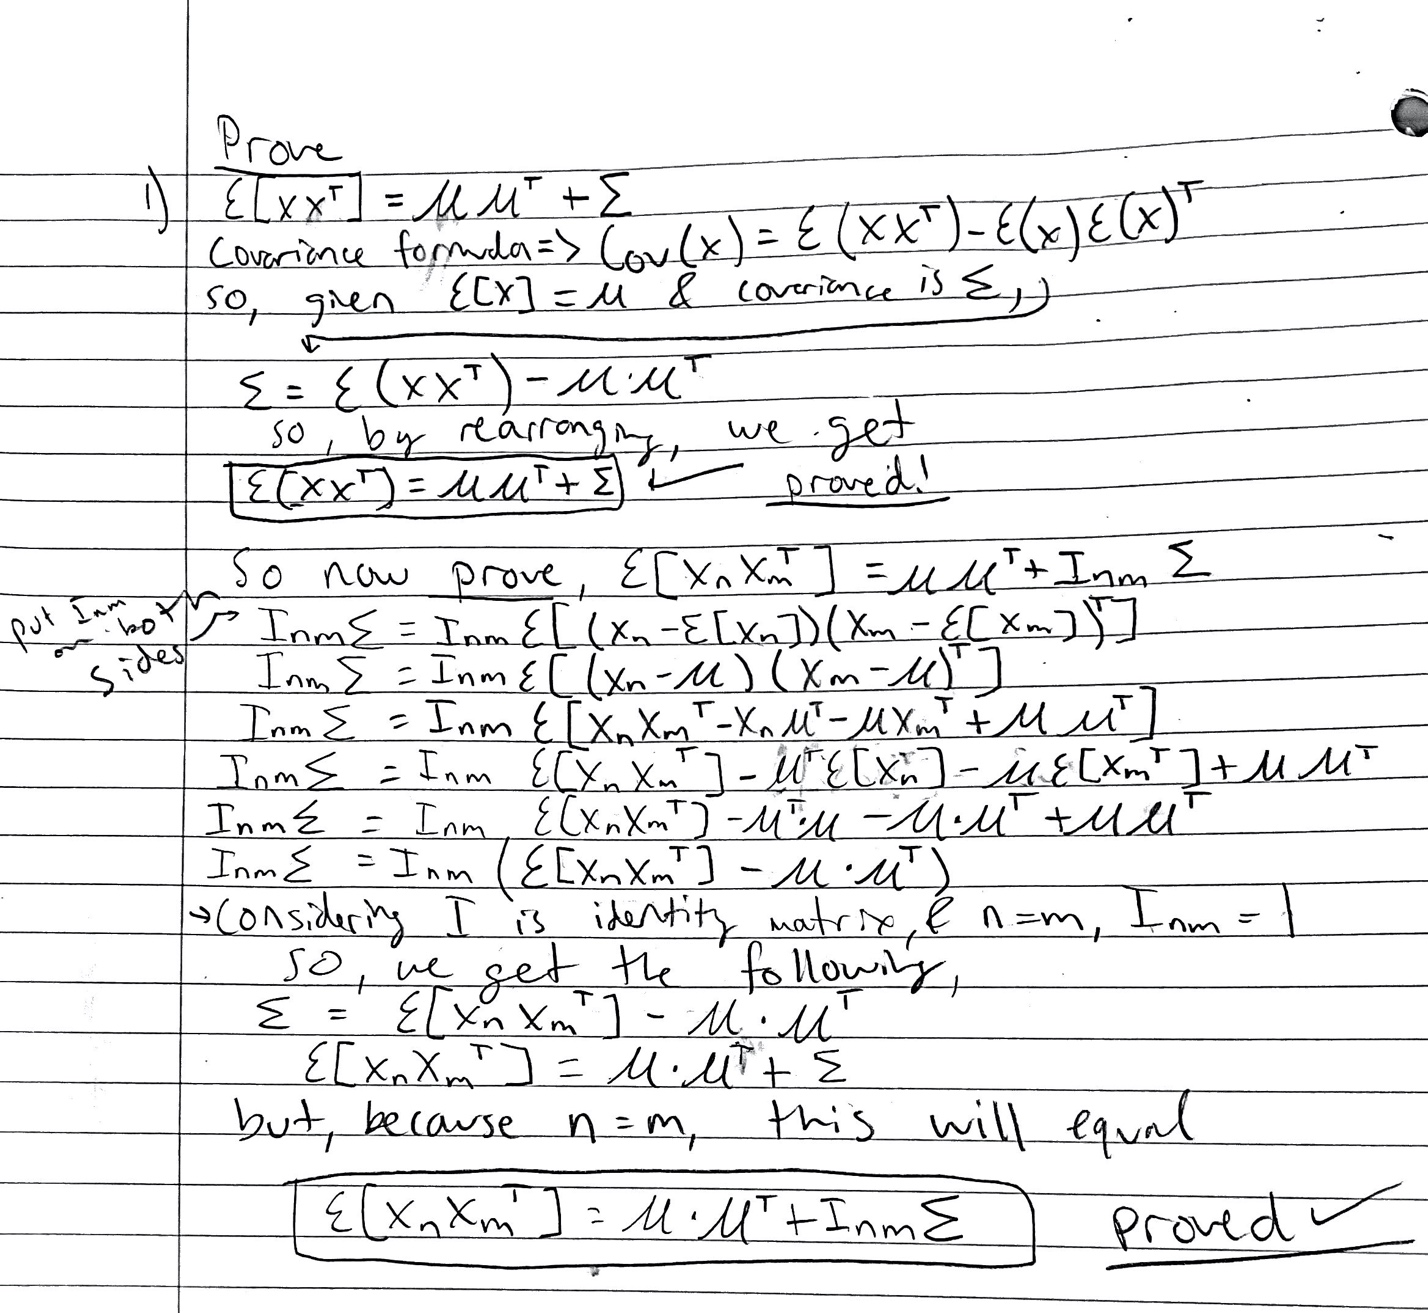 Prove
1) ε[xxᵀ] = μμᵀ + Σ
Covariance formula => Cov(x) = ε(xxᵀ) - ε(x)ε(x)ᵀ
so, given ε[x] = μ & covariance is Σ,
Σ = ε(xxᵀ) - μ·μᵀ
so, by rearranging, we get
ε(xxᵀ) = μμᵀ + Σ proved!
So now prove, ε[xₙxₘᵀ] = μμᵀ + Iₙₘ Σ
put Iₙₘ on both sides
IₙₘΣ = Iₙₘ ε[(xₙ - ε[xₙ])(xₘ - ε[xₘ])ᵀ]
IₙₘΣ = Iₙₘ ε[(xₙ - μ)(xₘ - μ)ᵀ]
IₙₘΣ = Iₙₘ ε[xₙxₘᵀ - xₙμᵀ - μxₘᵀ + μμᵀ]
IₙₘΣ = Iₙₘ ε[xₙxₘᵀ] - μᵀε[xₙ] - με[xₘᵀ] + μμᵀ
IₙₘΣ = Iₙₘ ε[xₙxₘᵀ] - μᵀ·μ - μ·μᵀ + μμᵀ
IₙₘΣ = Iₙₘ (ε[xₙxₘᵀ] - μ·μᵀ)
→ Considering I is identity matrix, & n=m, Iₙₘ = 1
so, we get the following,
Σ = ε[xₙxₘᵀ] - μ·μᵀ
ε[xₙxₘᵀ] = μ·μᵀ + Σ
but, because n=m, this will equal
ε[xₙxₘᵀ] = μ·μᵀ + IₙₘΣ proved ✓